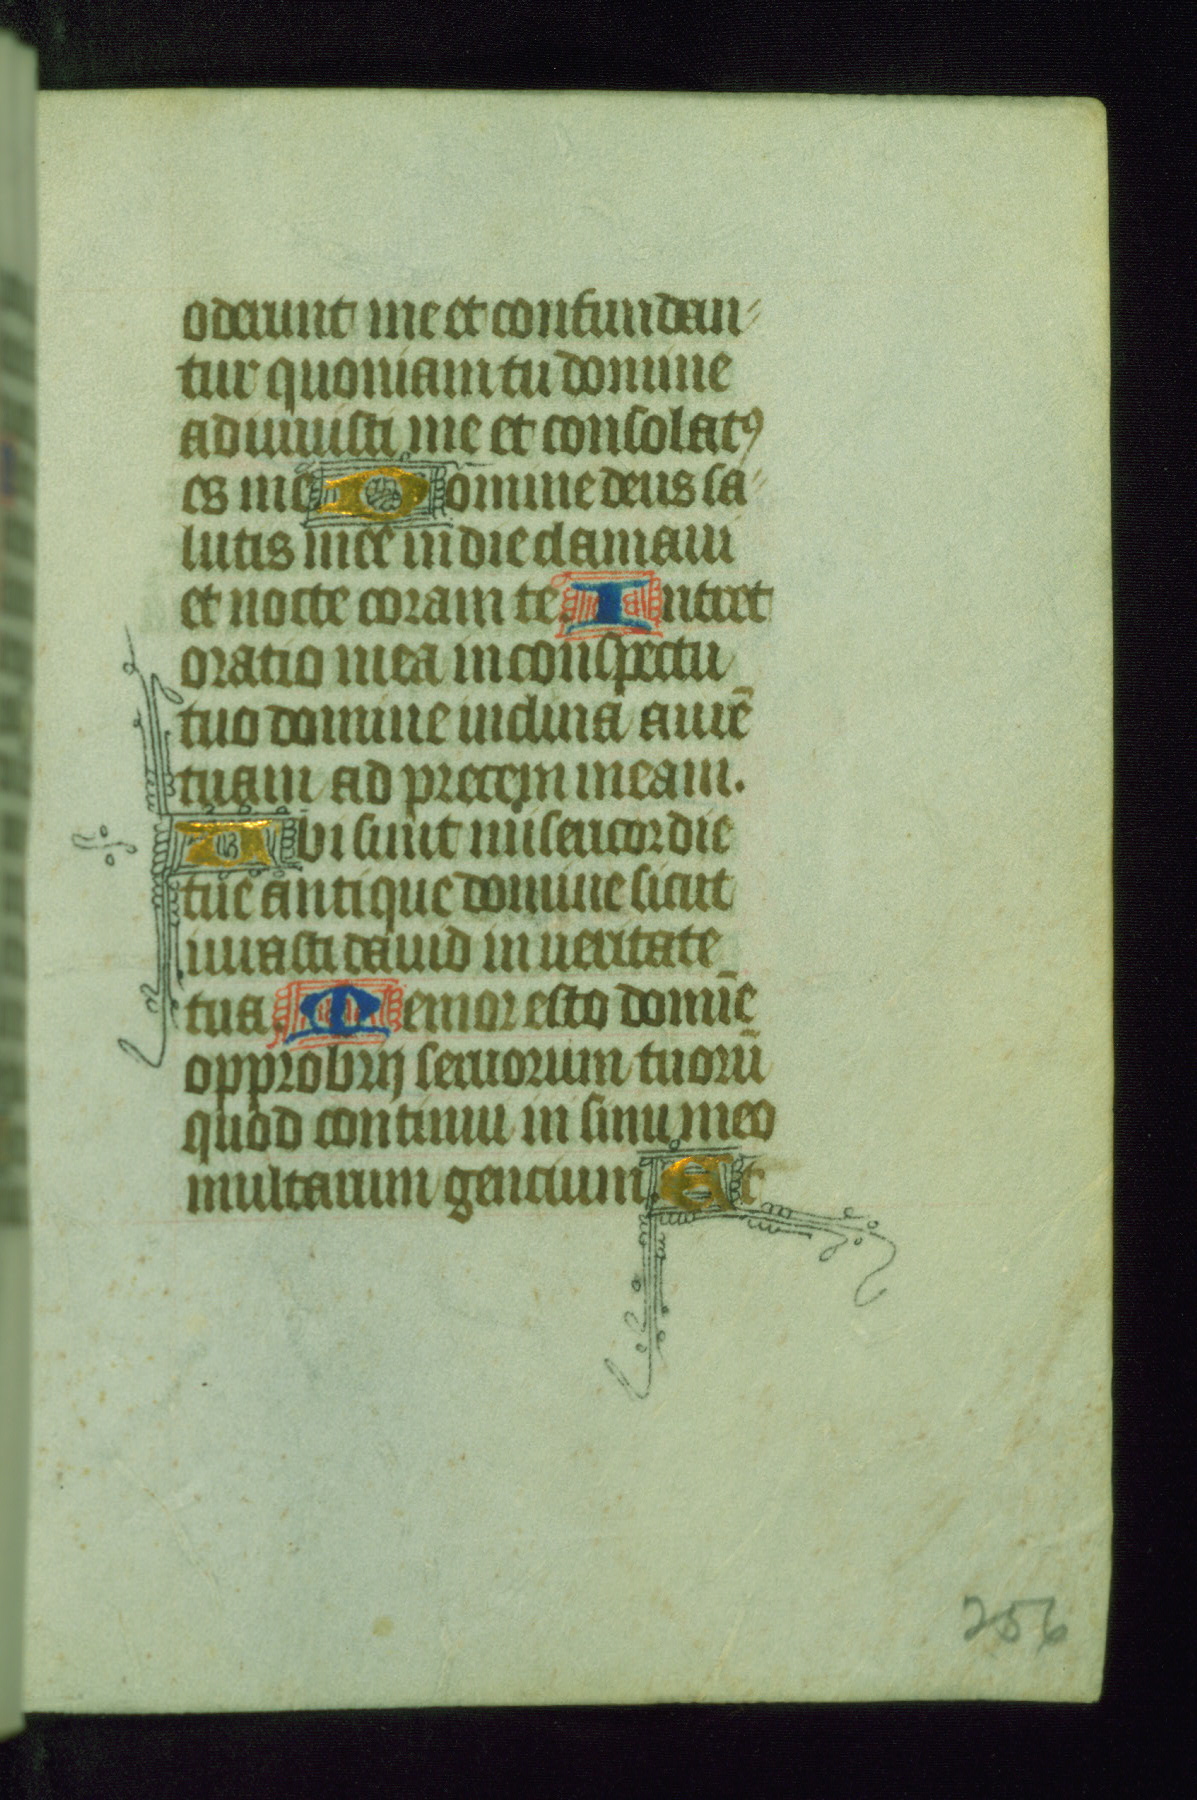 oderunt me et confundan〃
tur quoniam tu domine
adiuuisti me et consolatꝰ
es me Domine deus sa〃
lutis mee in die clamaui
et nocte coram te. Intret
oratio mea in conspectu
tuo domine inclina aurē
tuam ad precem meam.
Ubi sunt misericordie
tue antique domine sicut
iurasti dauid in ueritate
tua. Memor esto domīe
opprobrij seruorum tuorū
quod continui in sinu meo
multarum gencium. Et
256